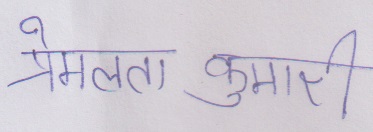 प्रेमलता कुमारी